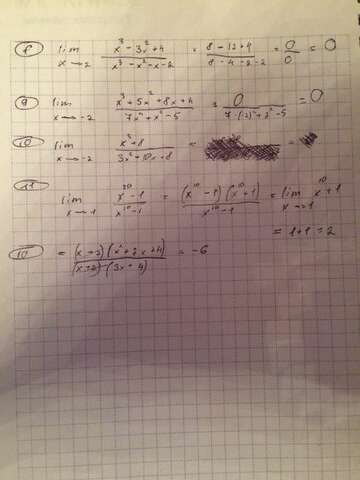 8) lim x→2 (x³ - 3x² + 4)/(x³ - x² - x - 2) = (8 - 12 + 4)/(8 - 4 - 2 - 2) = 0/0 = 0
9) lim x→-2 (x³ + 5x² + 8x + 4)/(7x² + x² - 5) = 0/(7·(-2)² + 2² - 5) = 0
10) lim x→-2 (x³ + 8)/(3x² + 10x + 8) = =
11) lim x→1 (x²⁰ - 1)/(x¹⁰ - 1) = (x¹⁰ - 1)(x¹⁰ + 1)/(x¹⁰ - 1) = lim x→1 x¹⁰ + 1
= 1 + 1 = 2
10) = (x + 2)(x² + 2x + 4)/(x + 2)(3x + 4) = -6